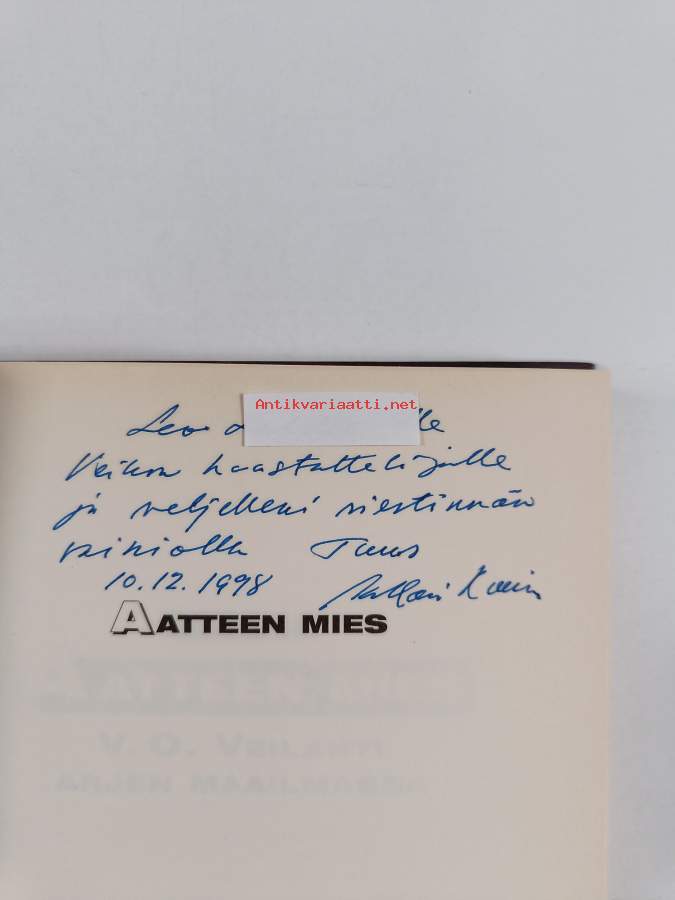 Antikvariaatti.net
Leo
Veikon haastattelijalle
ja veljelleni viestinnän
vainiolla
10.12.1998
AATTEEN MIES
V. O. VEILAHTI
ARJEN MAAILMASSA